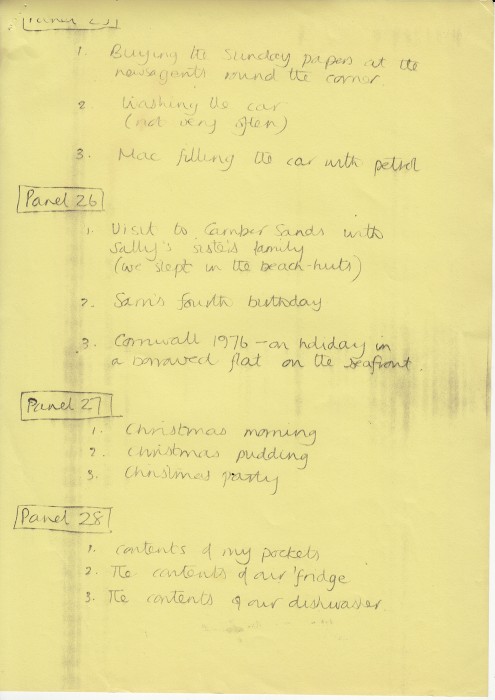 Panel 25
1. Buying the Sunday papers at the
newsagents round the corner.
2. Washing the car
(not very often)
3. Mac filling the car with petrol
Panel 26
1. Visit to Camber Sands with
Sally's sister's family
(we slept in the beach-huts)
2. Sam's fourth birthday
3. Cornwall 1976 - on holiday in
a borrowed flat on the seafront.
Panel 27
1. Christmas morning
2. Christmas pudding
3. Christmas party
Panel 28
1. contents of my pockets
2. The contents of our 'fridge
3. The contents of our dishwasher.